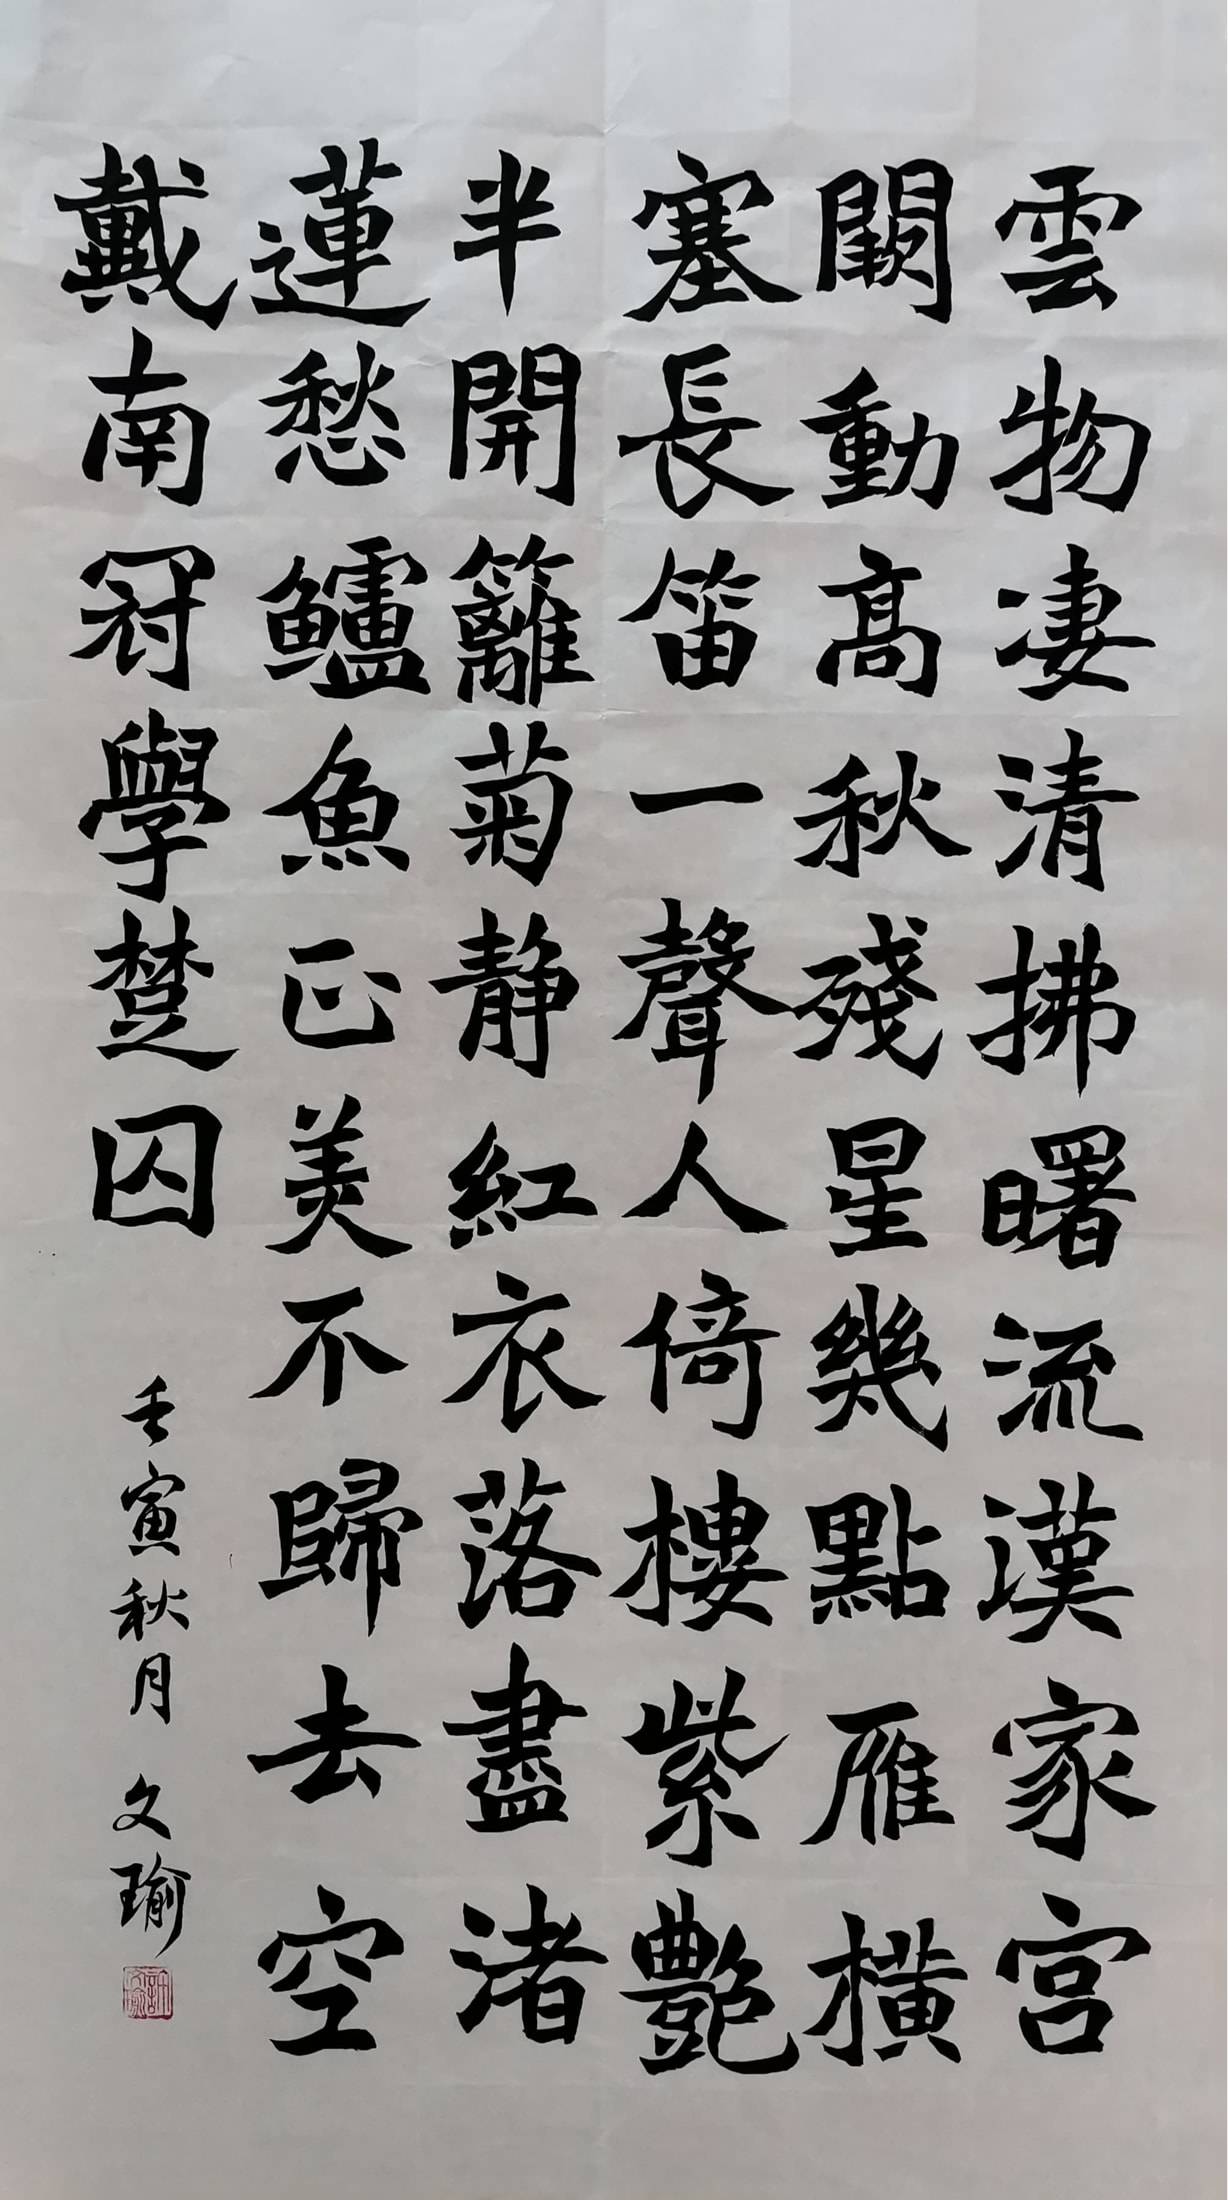 雲物凄清拂曙流漢家宫
闕動高秋殘星幾點雁横
塞長笛一聲人倚樓紫艷
半開籬菊静紅衣落盡渚
蓮愁鱸魚正美不歸去空
戴南冠學楚囚
壬寅秋月 文瑜